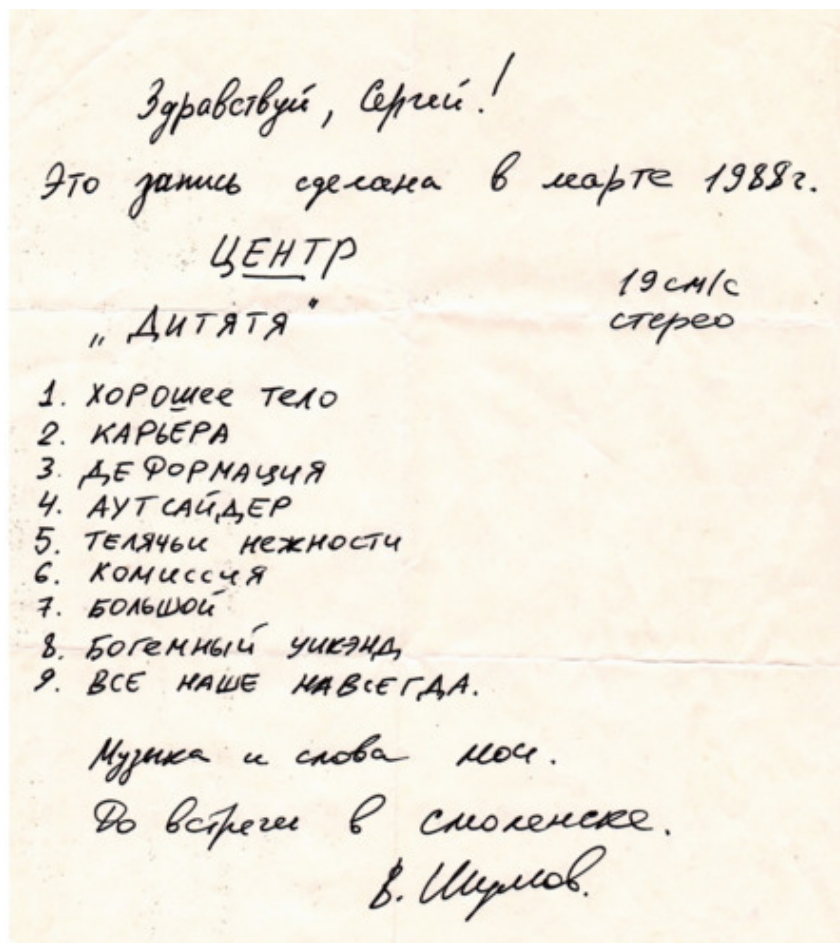 Здравствуй, Сергей!
Это запись сделана в марте 1988г.
ЦЕНТР
19 см/с
„ДИТЯТЯ"
стерео
1. ХОРОШЕЕ ТЕЛО
2. КАРЬЕРА
3. ДЕФОРМАЦИЯ
4. АУТСАЙДЕР
5. ТЕЛЯЧЬИ НЕЖНОСТИ
6. КОМИССИЯ
7. БОЛЬШОЙ
8. БОГЕМНЫЙ УИКЭНД
9. ВСЕ НАШЕ НАВСЕГДА.
Музыка и слова мои.
До встречи в Смоленске.
В. Шумов.